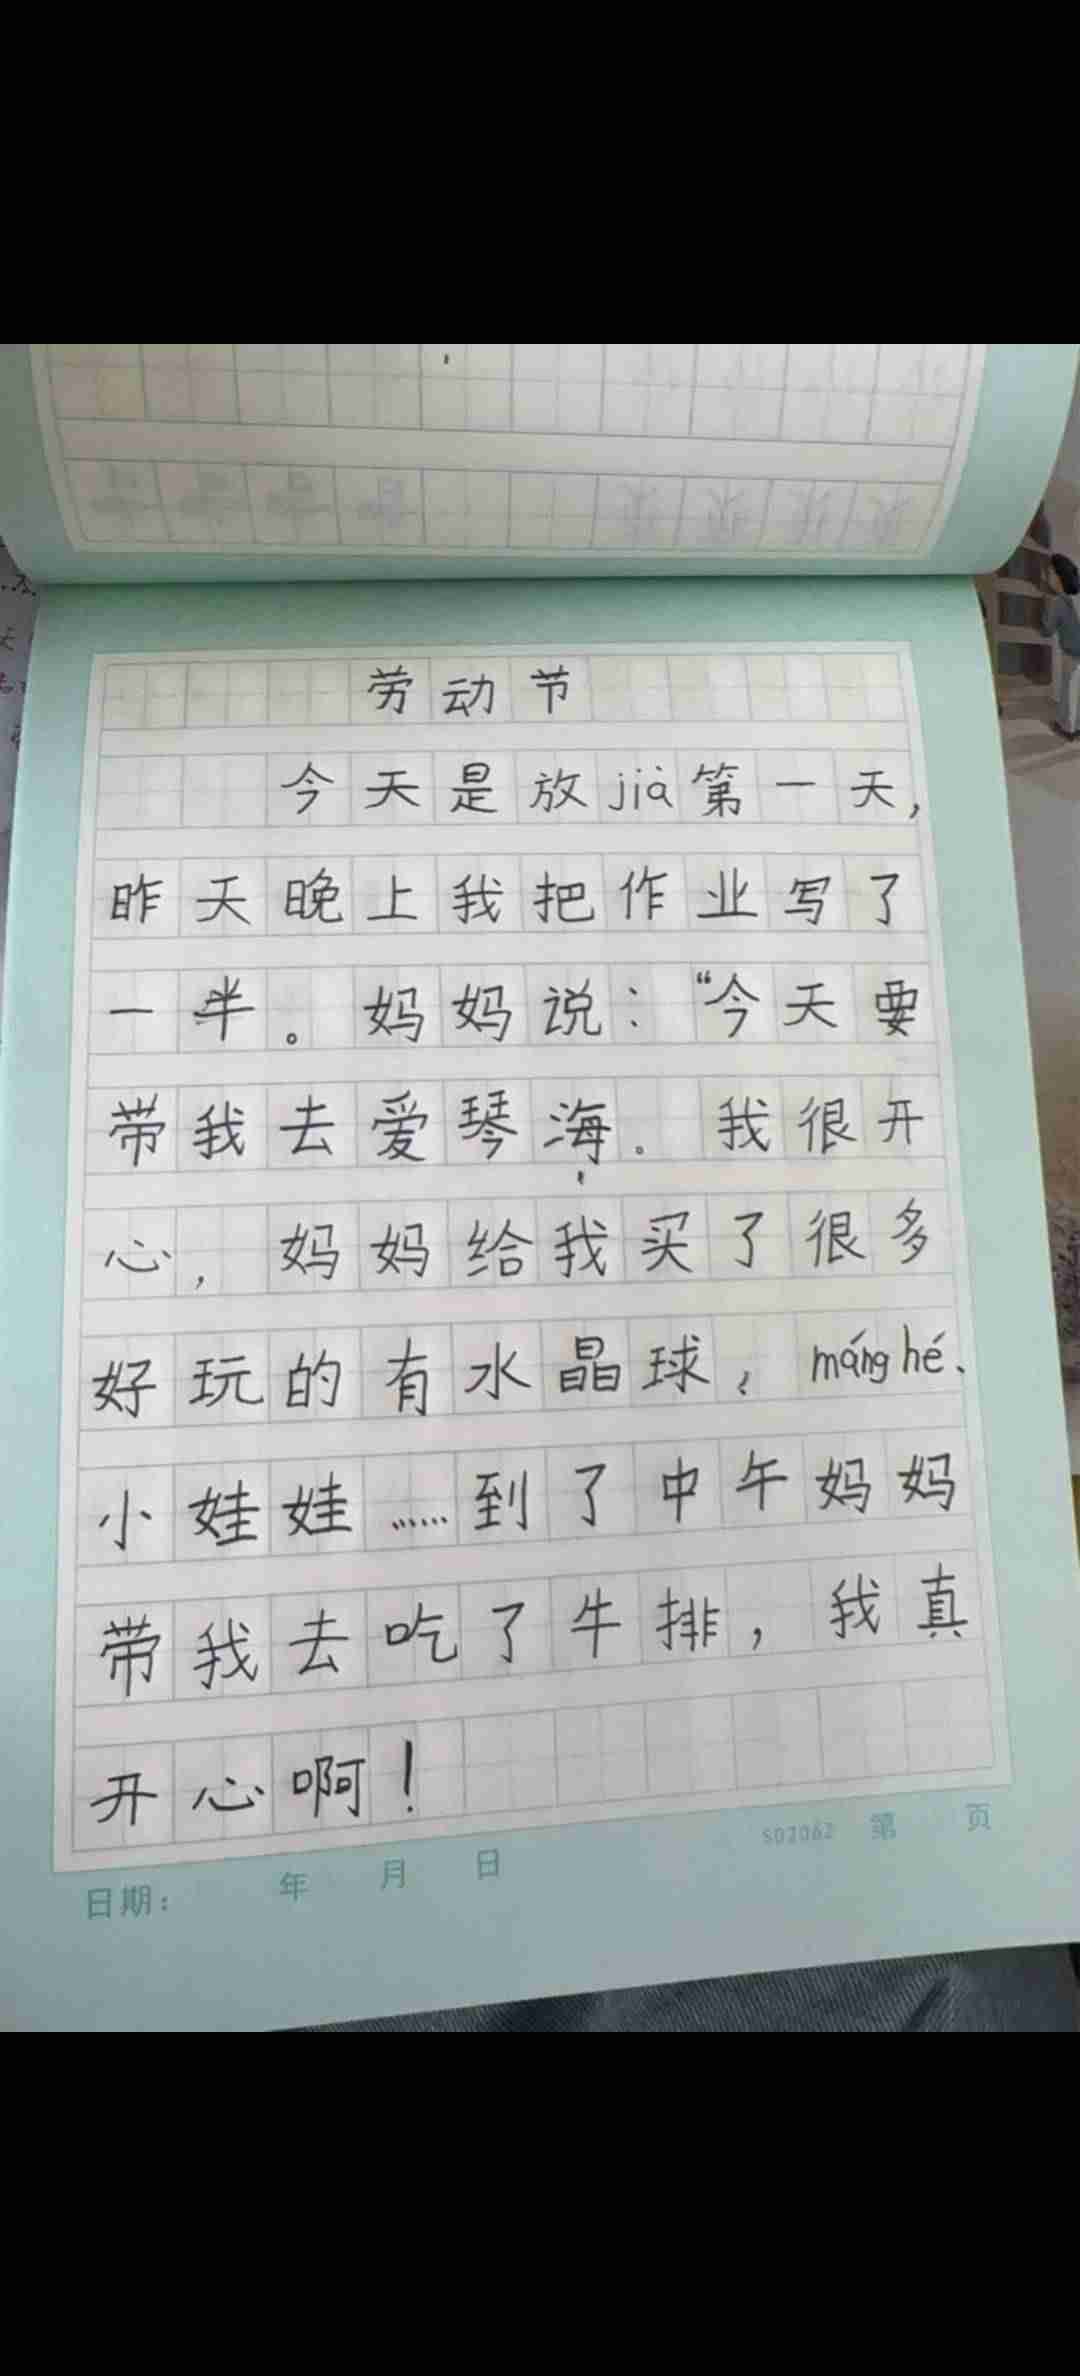 劳动节
今天是放jià第一天,
昨天晚上我把作业写了
一半。妈妈说:“今天要
带我去爱琴海。我很开
心,妈妈给我买了很多
好玩的有水晶球,máng hé、
小娃娃……到了中午妈妈
带我去吃了牛排,我真
开心啊!
S02062 第 页
日期: 年 月 日